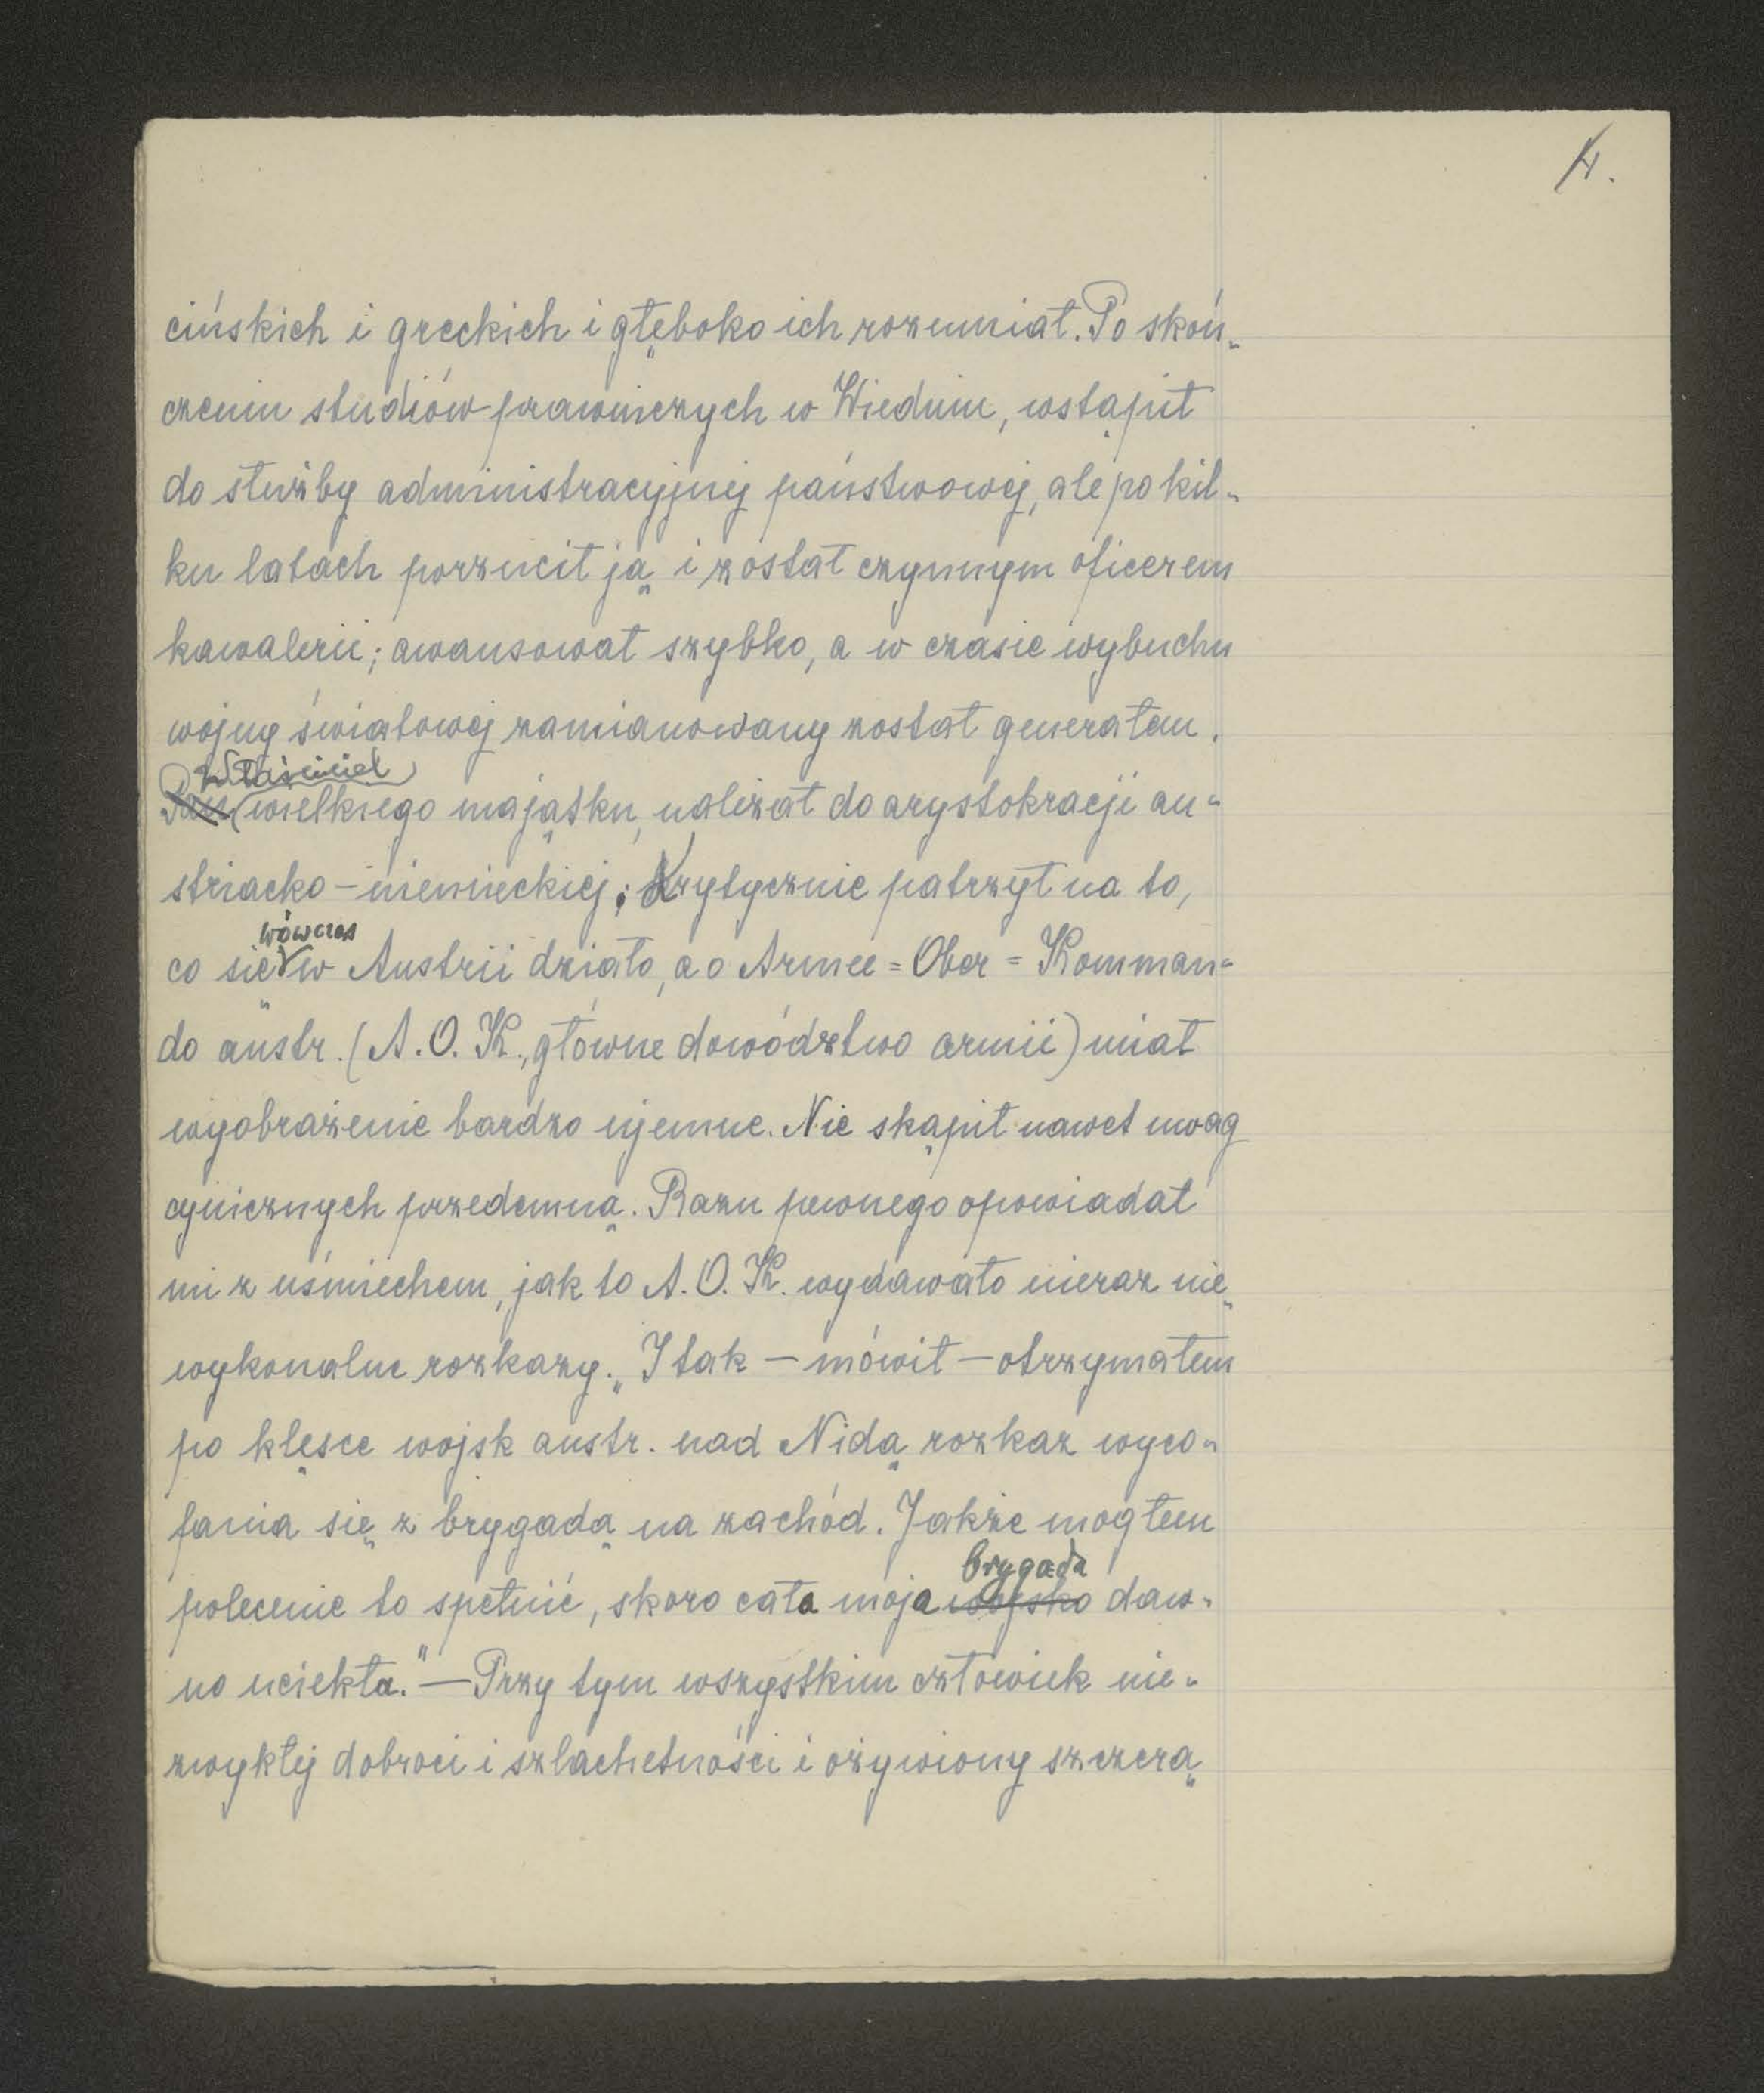 4.
cińskich i greckich i głęboko ich rozumiał. Po skoń-
czeniu studiów prawniczych w Wiedniu, wstąpił
do służby administracyjnej państwowej, ale po kil-
ku latach porzucił ją i został czynnym oficerem
kawalerii; awansował szybko, a w czasie wybuchu
wojny światowej zamianowany został generałem.
właściciel
Pan wielkiego majątku, należał do arystokracji au-
striacko-niemieckiej; krytycznie patrzył na to,
wówczas
co się w Austrii działo, a o Armee=Ober=Komman-
do austr. (A. O. K., główne dowództwo armii) miał
wyobrażenie bardzo ujemne. Nie skąpił nawet uwag
cynicznych przedemną. Razu pewnego opowiadał
mi z uśmiechem, jak to A. O. K. wydawało nieraz nie-
wykonalne rozkazy. „I tak — mówił — otrzymałem
po klęsce wojsk austr. nad Nidą rozkaz wyco-
fania się z brygadą na zachód. Jakże mogłem
brygada
polecenie to spełnić, skoro cała moja wojsko daw-
no uciekła." — Przy tym wszystkim człowiek nie-
zwykłej dobroci i szlachetności i ożywiony szczerą